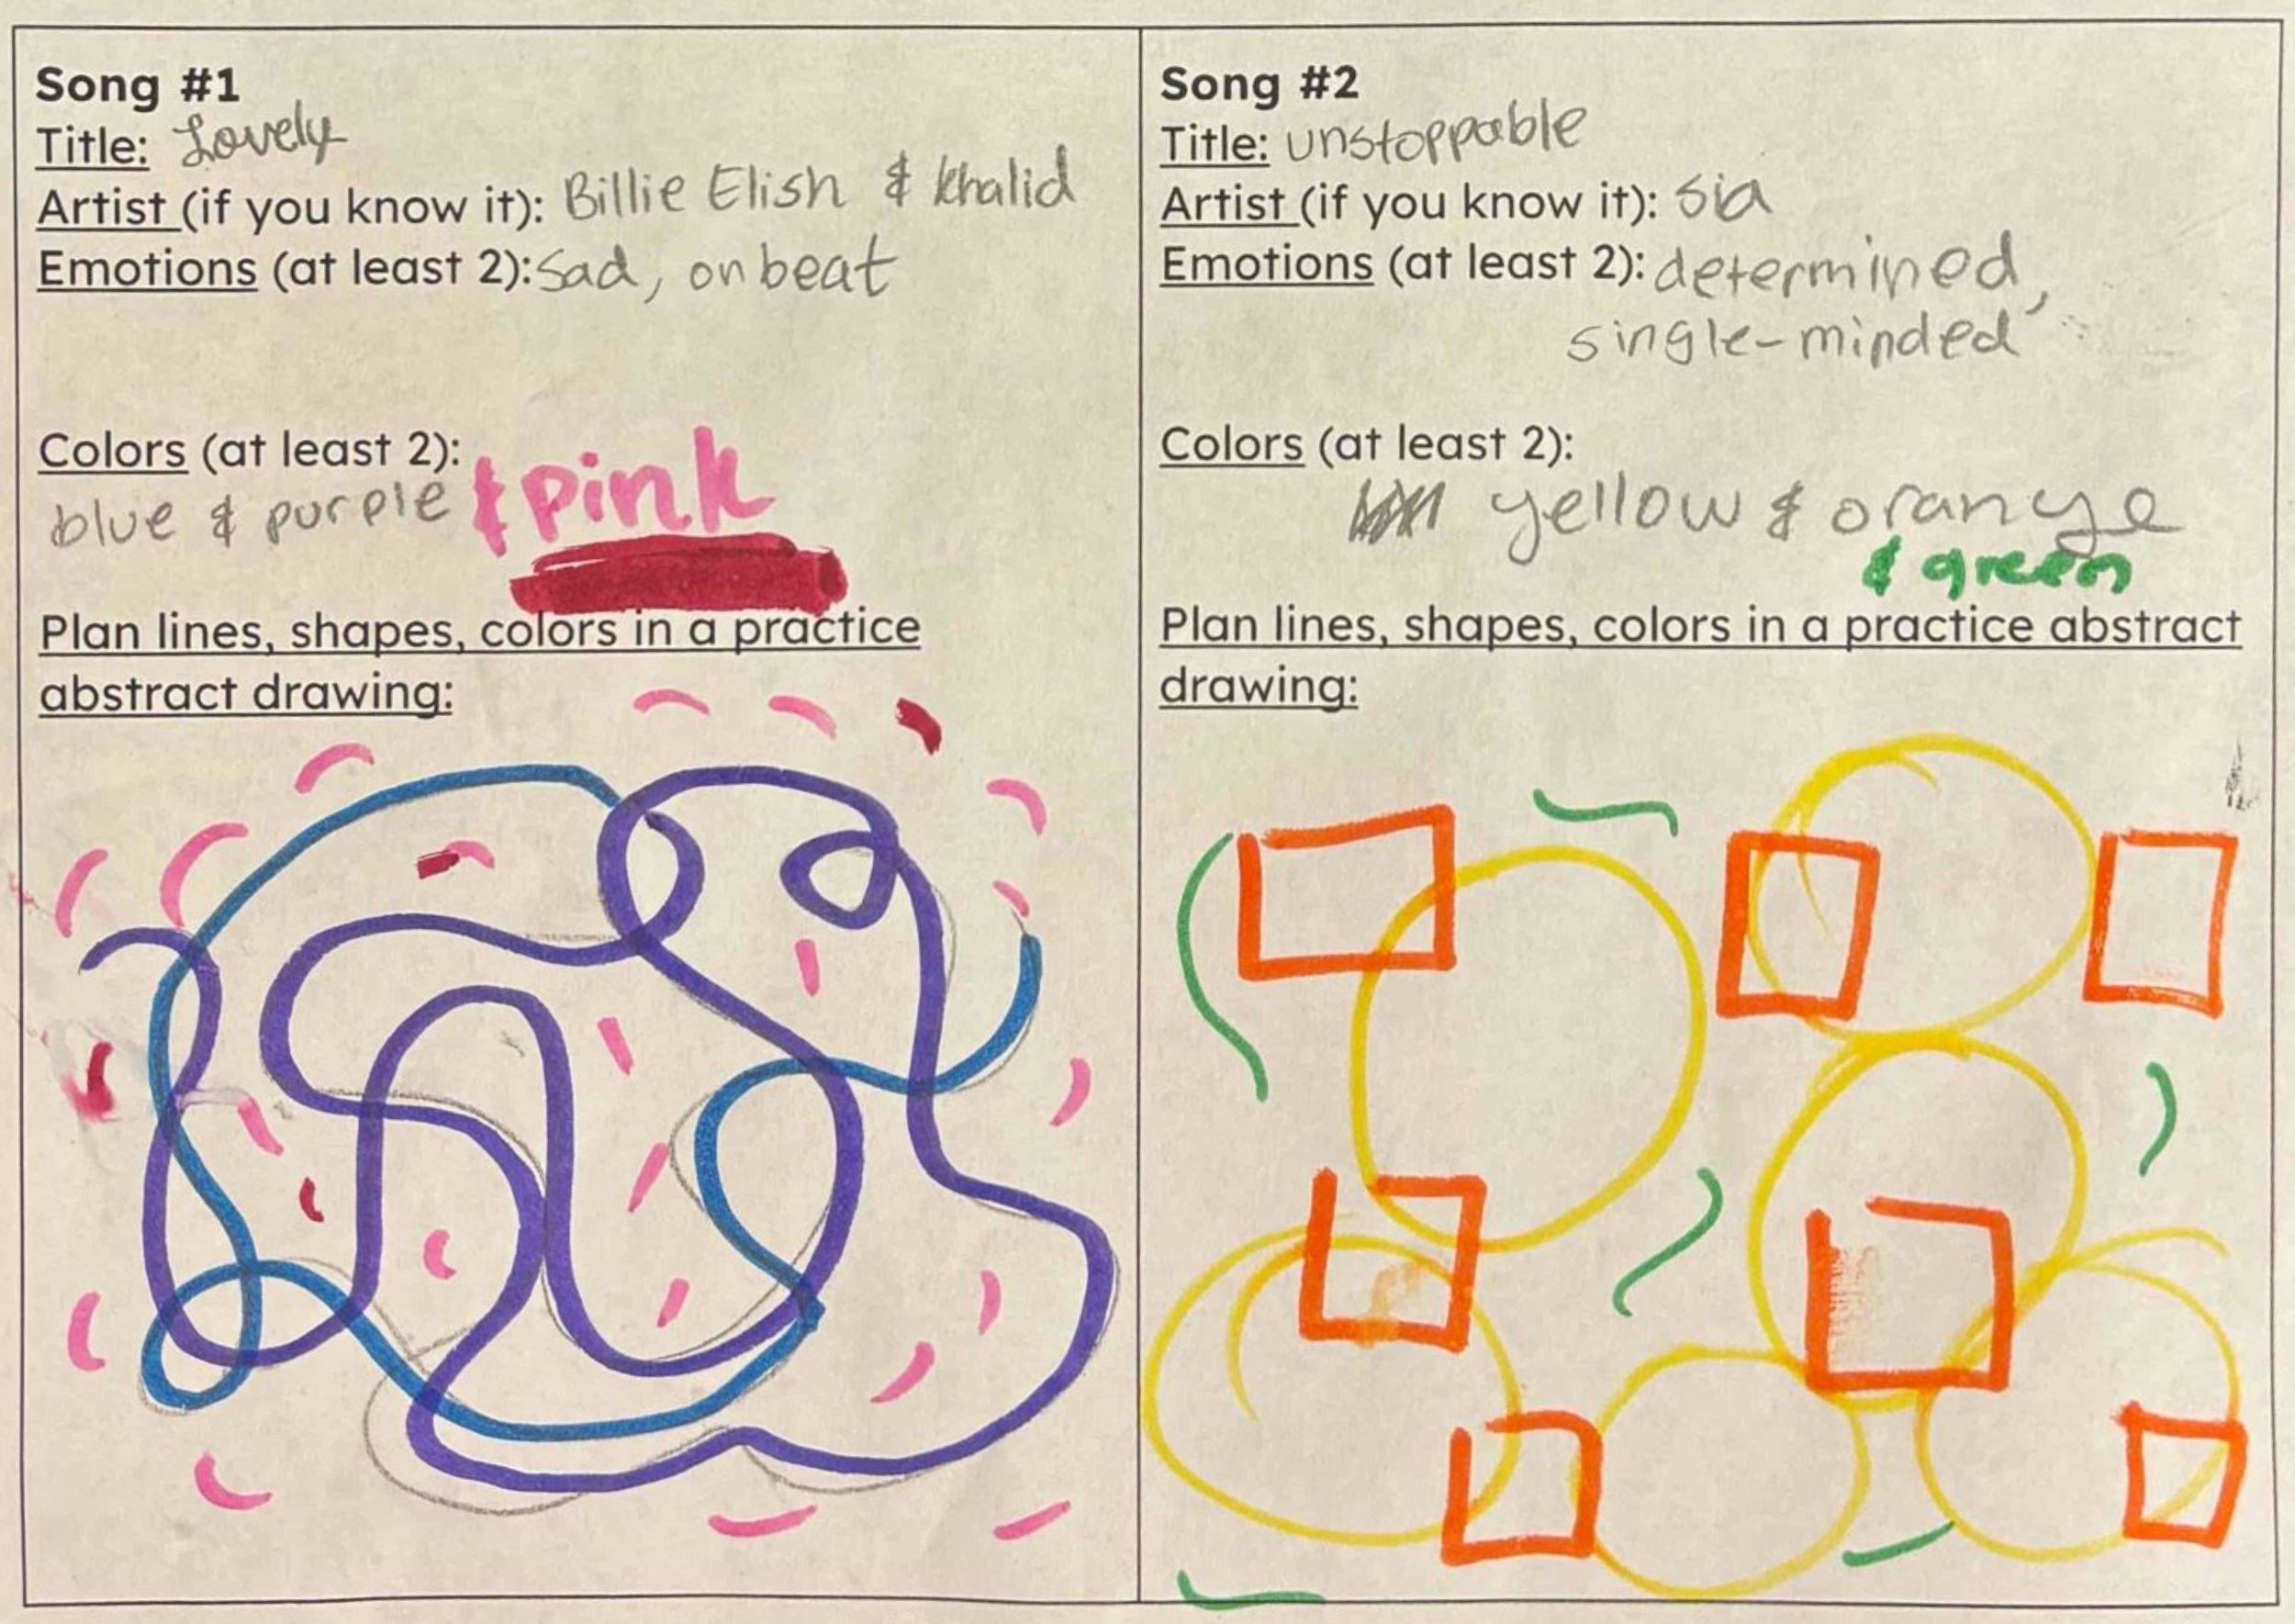 Song #1
Title: Lovely
Artist (if you know it): Billie Elish & Khalid
Emotions (at least 2): Sad, on beat
Colors (at least 2):
blue & purple & pink
Plan lines, shapes, colors in a practice
abstract drawing:
Song #2
Title: unstoppable
Artist (if you know it): sia
Emotions (at least 2): determined,
single-minded
Colors (at least 2):
yellow & orange
& green
Plan lines, shapes, colors in a practice abstract
drawing: